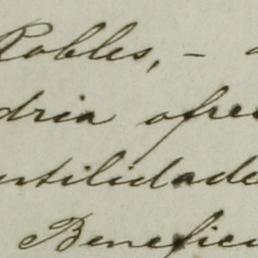 Robles, –
dria ofre
ntilidade
Benefici